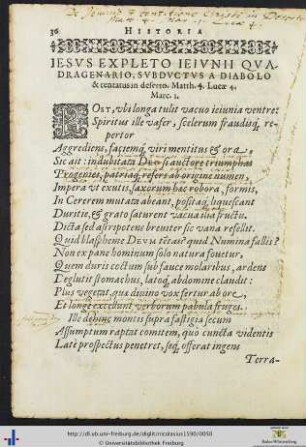 De Jeiunio & tentatione Christi in Deserto
Matt. 4. Marc. 1. Lucæ 4.
36 HISTORIA
IESVS EXPLETO IEIVNII QVA-
DRAGENARIO, SVBDVCTVS A DIABOLO
& tentatus in deserto. Matth. 4. Lucæ 4.
Marc. 1.
POST, vbi longa tulit vacuo ieiunia ventre:
Spiritus ille vafer, scelerum fraudisq́; re-
pertor
Aggrediens, faciemq́; viri mentitus & ora,
Sic ait: indubitata DEO
Progenies, patrisq́; refers ab origine numen,
Impera vt exutis, saxorum hæc robora, formis,
In Cererem mutata abeant, positaq́; liquescant
Duritie, & grato saturent vacua ilia fructu.
Dicta sed astripotens breuiter sic vana refellit.
Quid blaspheme DEVM tẽtas? quid Numina fallis?
Non ex pane hominum solo natura fouetur,
Quem duris coctum sub fauce molaribus, ardent
Deglutit stomachus, latoq́; abdomine claudit:
Plus vegetat, quæ diuino vox fertur ab ore,
Et longè excellunt verborum pabula fruges.
Ille dehinc montis supra fastigia secum
Assumptum raptat comitem, quo cuncta videntis
Latè prospectus penetret, seq́; offerat ingens
Terra-
http://dl.ub.uni-freiburg.de/diglit/nicolasius1590/0050
© Universitätsbibliothek Freiburg
Baden-Württemberg